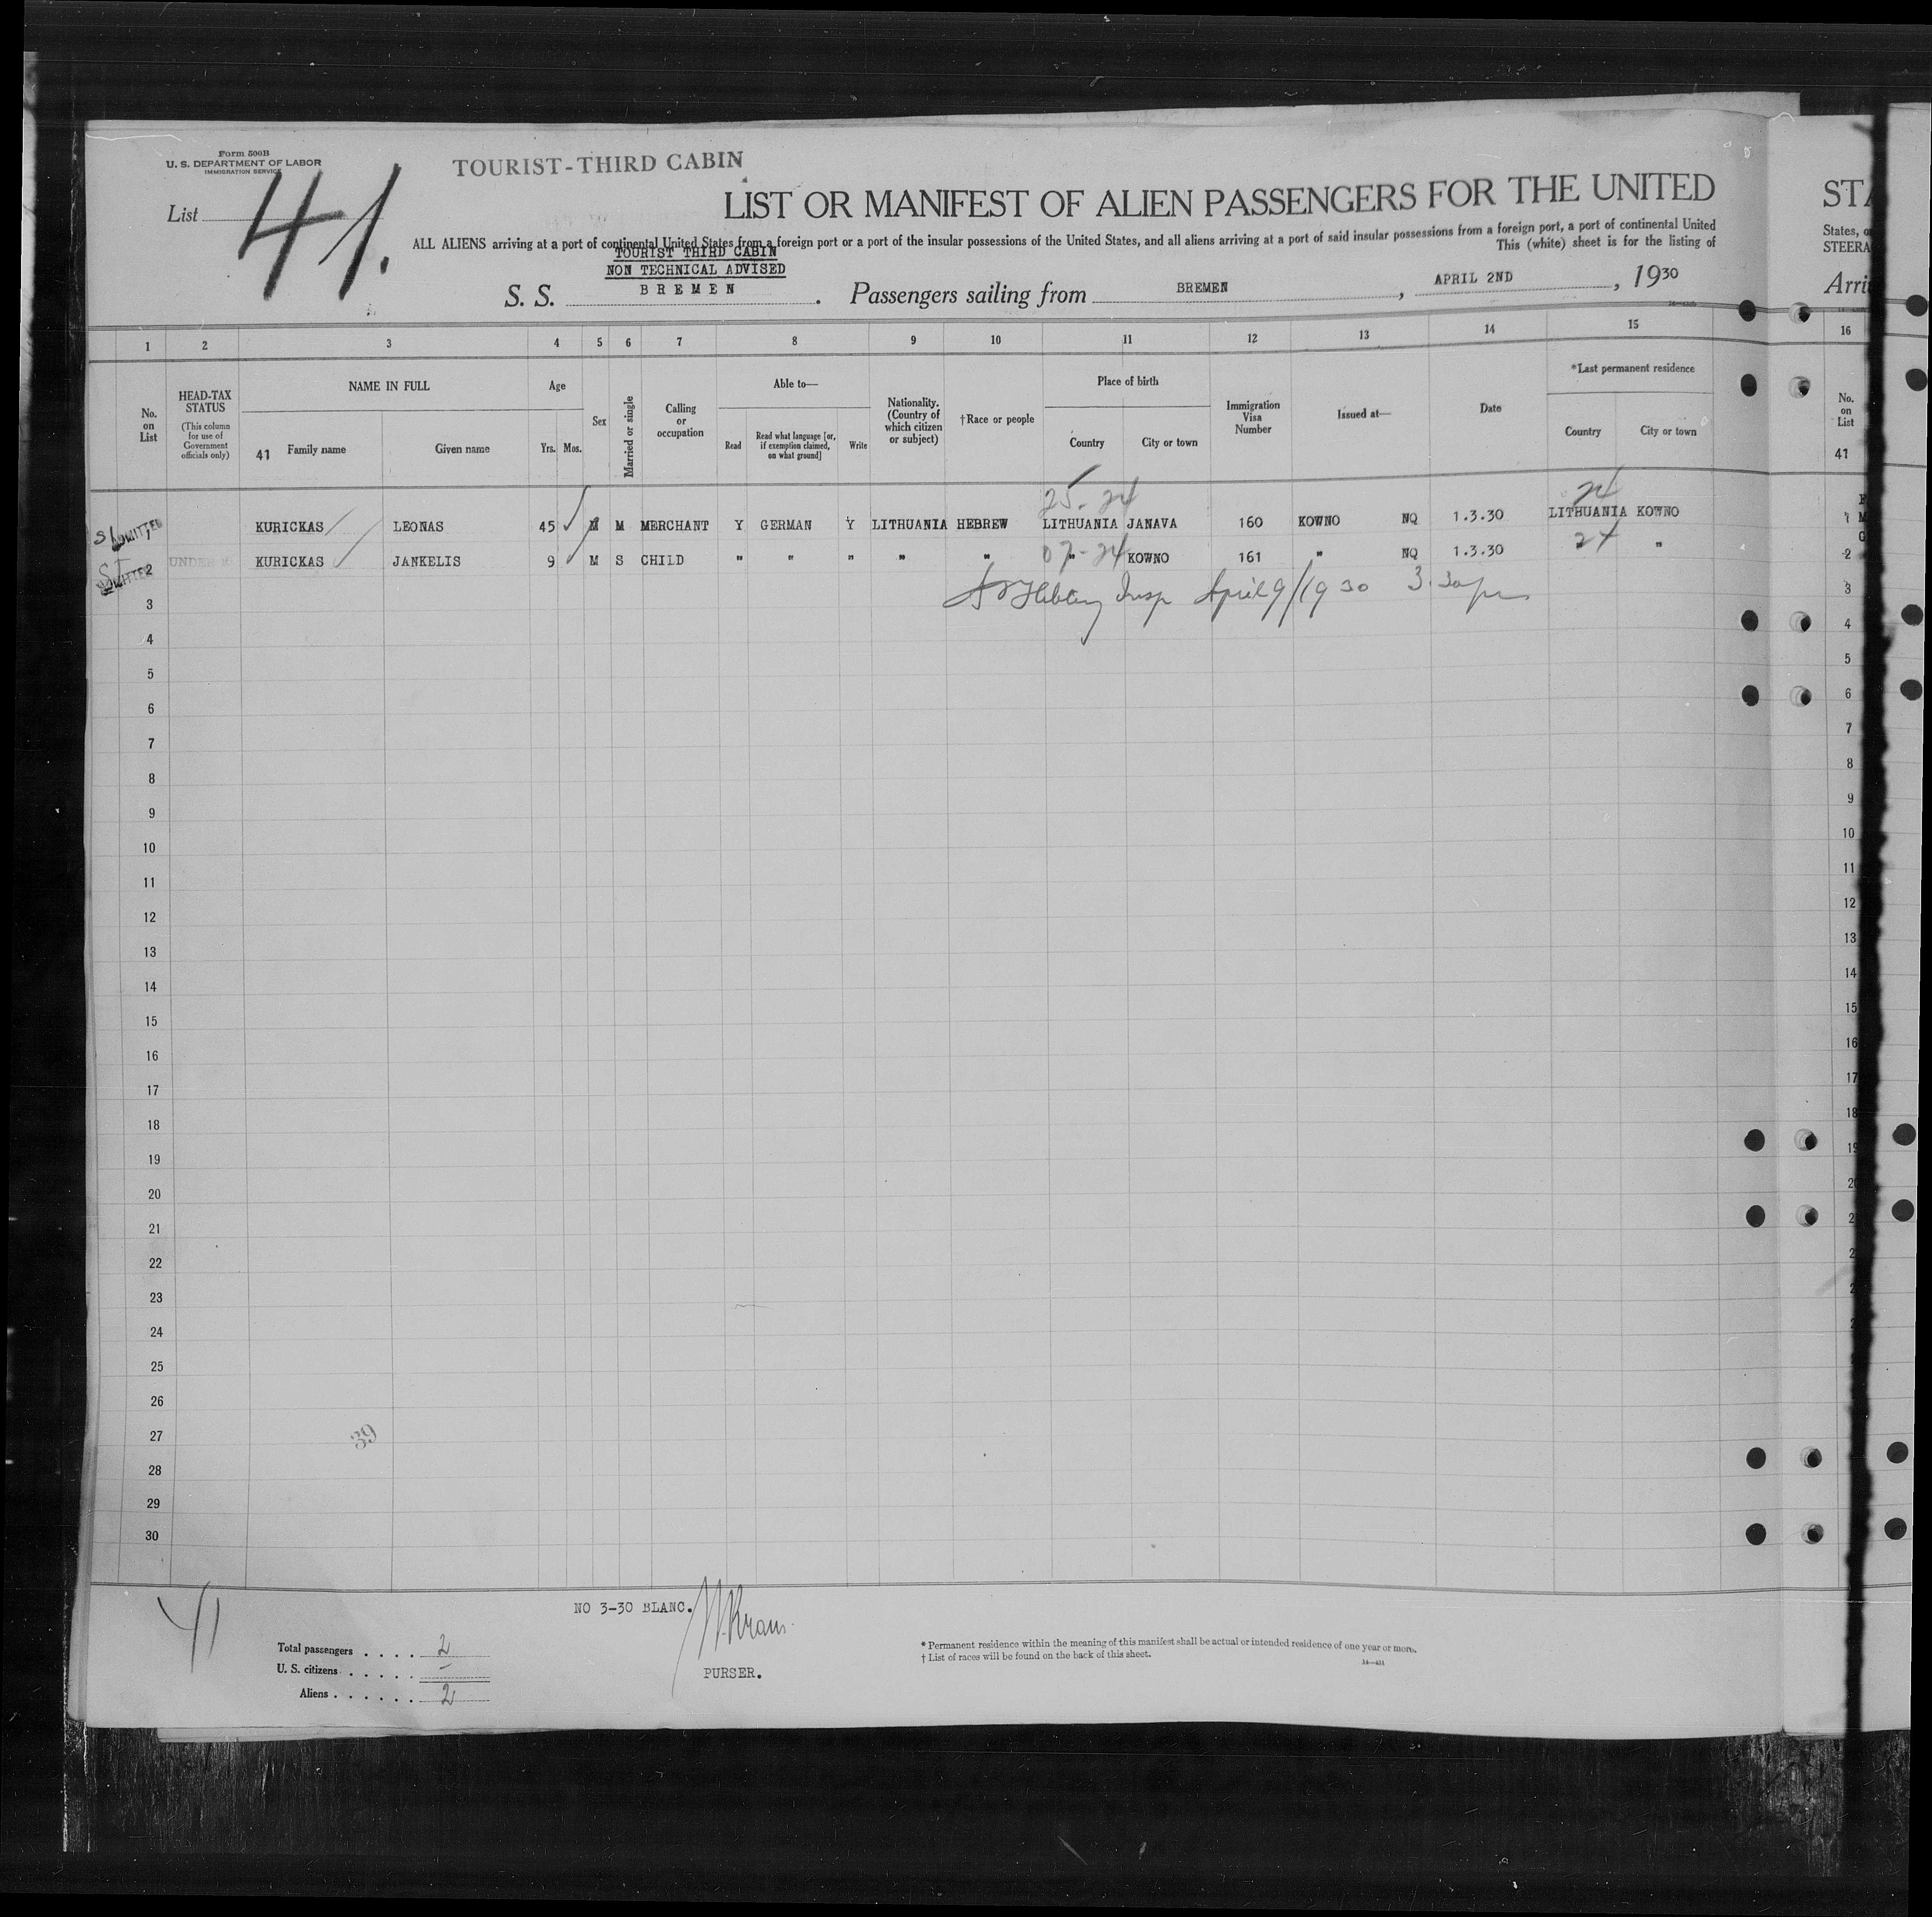 Form 500B
U. S. DEPARTMENT OF LABOR
IMMIGRATION SERVICE
TOURIST-THIRD CABIN
List 41.
LIST OR MANIFEST OF ALIEN PASSENGERS FOR THE UNITED
STA
ALL ALIENS arriving at a port of continental United States from a foreign port or a port of the insular possessions of the United States, and all aliens arriving at a port of said insular possessions from a foreign port, a port of continental United
States, o
This (white) sheet is for the listing of
STEERA
TOURIST THIRD CABIN
NON TECHNICAL ADVISED
S. S. BREMEN. Passengers sailing from BREMEN, APRIL 2ND, 1930
Arri
1 2 3 4 5 6 7 8 9 10 11 12 13 14 15 16
No. on List
HEAD-TAX STATUS
(This column for use of Government officials only)
NAME IN FULL
41 Family name
Given name
Age
Yrs. Mos.
Sex
Married or single
Calling or occupation
Able to—
Read
Read what language [or, if exemption claimed, on what ground]
Write
Nationality. (Country of which citizen or subject)
†Race or people
Place of birth
Country
City or town
Immigration Visa Number
Issued at—
Date
*Last permanent residence
Country
City or town
No. on List
41
25-24 24
ADMITTED KURICKAS LEONAS 45 M M MERCHANT Y GERMAN Y LITHUANIA HEBREW LITHUANIA JANAVA 160 KOWNO NQ 1.3.30 LITHUANIA KOWNO 1
07-24 24
ADMITTED 2 UNDER 16 KURICKAS JANKELIS 9 M S CHILD " " " " " " KOWNO 161 " NQ 1.3.30 " 2
Insp April 9/1930 3.30 pm
3 3
4 4
5 5
6 6
7 7
8 8
9 9
10 10
11 11
12 12
13 13
14 14
15 15
16 16
17 17
18 18
19 19
20
21
22
23
24
25
26
27
39
28
29
30
41
NO 3-30 BLANC.
PURSER.
Total passengers . . . . 2
U. S. citizens . . . . . . –
Aliens . . . . . . 2
* Permanent residence within the meaning of this manifest shall be actual or intended residence of one year or more.
† List of races will be found on the back of this sheet.